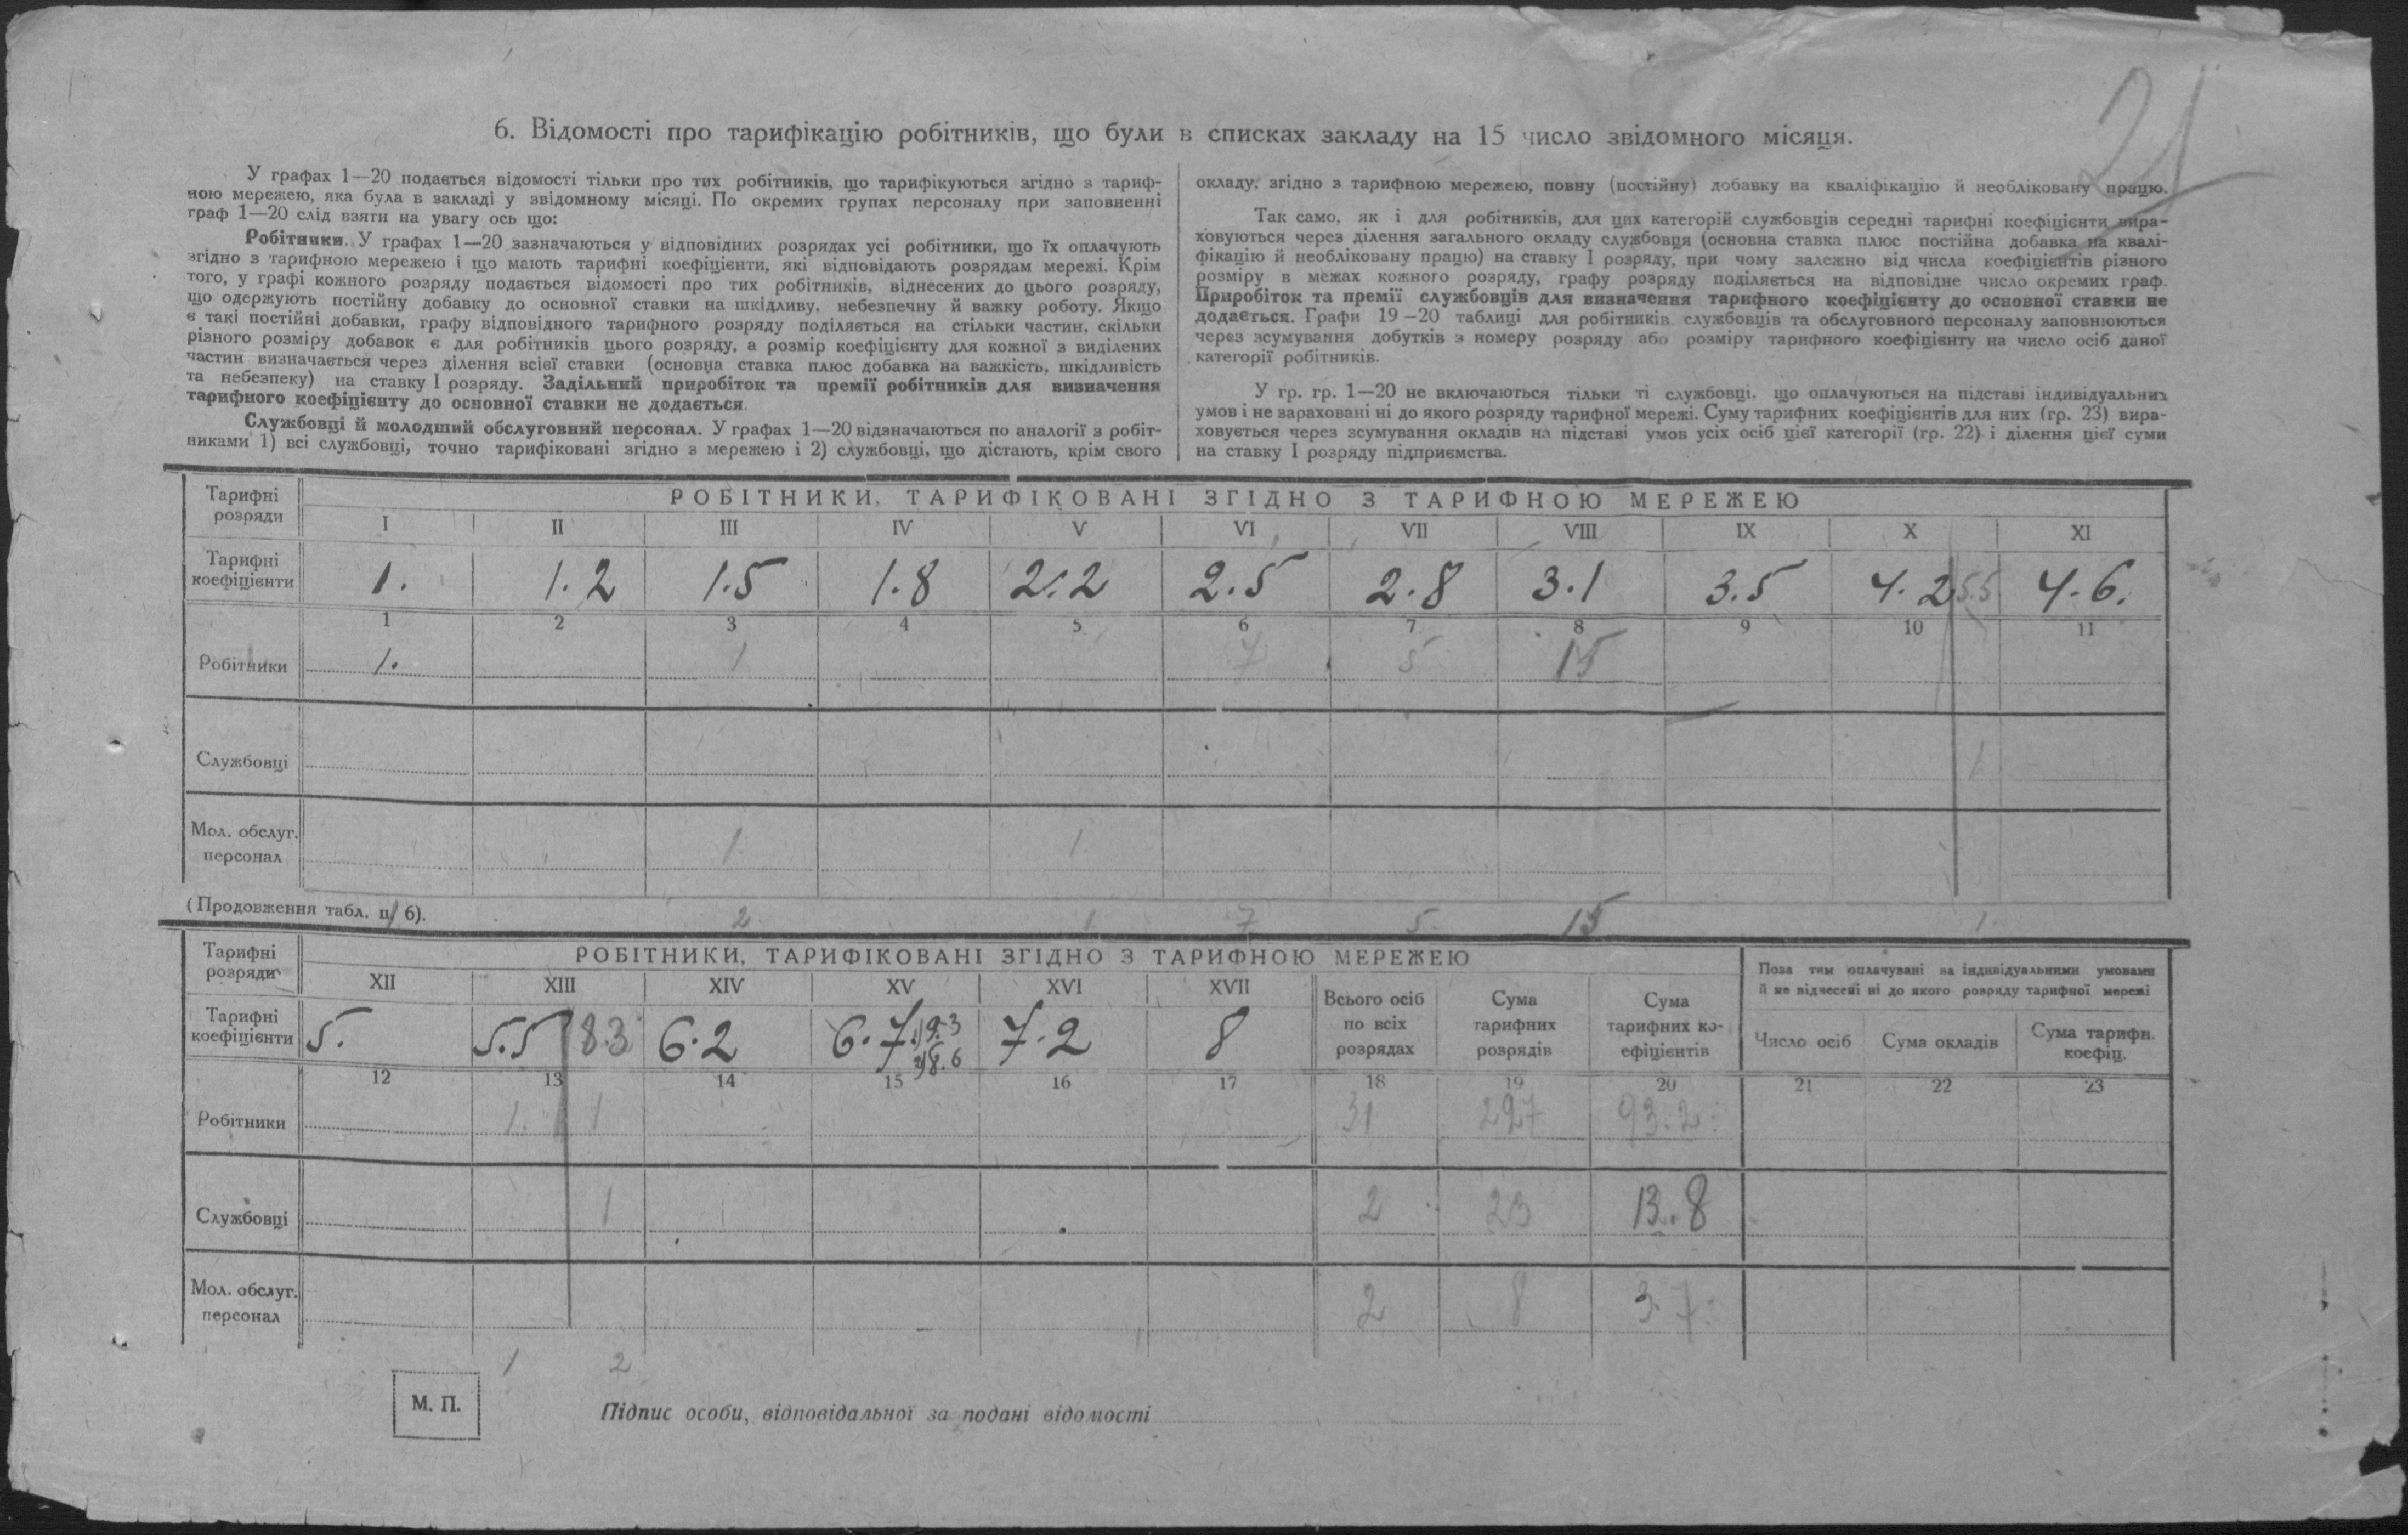 21
6. Відомості про тарифікацію робітників, що були в списках закладу на 15 число звідомного місяця.
У графах 1—20 подається відомості тільки про тих робітників, що тарифікуються згідно з тариф-
ною мережею, яка була в закладі у звідомному місяці. По окремих групах персоналу при заповненні
граф 1—20 слід взяти на увагу ось що:
Робітники. У графах 1—20 зазначаються у відповідних розрядах усі робітники, що їх оплачують
згідно з тарифною мережею і що мають тарифні коефіцієнти, які відповідають розрядам мережі. Крім
того, у графі кожного розряду подається відомості про тих робітників, віднесених до цього розряду,
що одержують постійну добавку до основної ставки на шкідливу, небезпечну й важку роботу. Якщо
є такі постійні добавки, графу відповідного тарифного розряду поділяється на стільки частин, скільки
різного розміру добавок є для робітників цього розряду, а розмір коефіцієнту для кожної з виділених
частин визначається через ділення всієї ставки (основна ставка плюс добавка на важкість, шкідливість
та небезпеку) на ставку I розряду. Задільний приробіток та премії робітників для визначення
тарифного коефіцієнту до основної ставки не додається.
Службовці й молодший обслуговний персонал. У графах 1—20 відзначаються по аналогії з робіт-
никами 1) всі службовці, точно тарифіковані згідно з мережею і 2) службовці, що дістають, крім свого
окладу, згідно з тарифною мережею, повну (постійну) добавку на кваліфікацію й необліковану працю.
Так само, як і для робітників, для цих категорій службовців середні тарифні коефіцієнти вира-
ховуються через ділення загального окладу службовця (основна ставка плюс постійна добавка на квалі-
фікацію й необліковану працю) на ставку I розряду, при чому залежно від числа коефіцієнтів різного
розміру в межах кожного розряду, графу розряду поділяється на відповідне число окремих граф.
Приробіток та премії службовців для визначення тарифного коефіцієнту до основної ставки не
додається. Графи 19—20 таблиці для робітників, службовців та обслуговного персоналу заповнюються
через зсумування добутків з номеру розряду або розміру тарифного коефіцієнту на число осіб даної
категорії робітників.
У гр. гр. 1—20 не включаються тільки ті службовці, що оплачуються на підставі індивідуальних
умов і не зараховані ні до якого розряду тарифної мережі. Суму тарифних коефіцієнтів для них (гр. 23) вира-
ховується через зсумування окладів на підставі умов усіх осіб цієї категорії (гр. 22) і ділення цієї суми
на ставку I розряду підприємства.
Тарифні розряди
РОБІТНИКИ, ТАРИФІКОВАНІ ЗГІДНО З ТАРИФНОЮ МЕРЕЖЕЮ
I II III IV V VI VII VIII IX X XI
Тарифні коефіцієнти 1. 1.2 1.5 1.8 2.2 2.5 2.8 3.1 3.5 4.2 5.5 4.6.
1 2 3 4 5 6 7 8 9 10 11
Робітники 1. 1 7 5 15
Службовці 1
Мол. обслуг. персонал 1 1
(Продовження табл. п. 6).
1 2 1 7 5 15 1
Тарифні розряди
РОБІТНИКИ, ТАРИФІКОВАНІ ЗГІДНО З ТАРИФНОЮ МЕРЕЖЕЮ
Поза тим оплачувані за індивідуальними умовами
й не віднесені ні до якого розряду тарифної мережі
XII XIII XIV XV XVI XVII
Всього осіб по всіх розрядах
Сума тарифних розрядів
Сума тарифних коефіцієнтів
Число осіб
Сума окладів
Сума тарифн. коефіц.
Тарифні коефіцієнти 5. 5.5 8.3 6.2 6.7 1) 9.3 2) 8.6 7.2 8
12 13 14 15 16 17 18 19 20 21 22 23
Робітники 1. 1 31 227 93.2
Службовці 1 2 23 13.8
Мол. обслуг. персонал 2 8 3.7
1 2
М. П.
Підпис особи, відповідальної за подані відомості